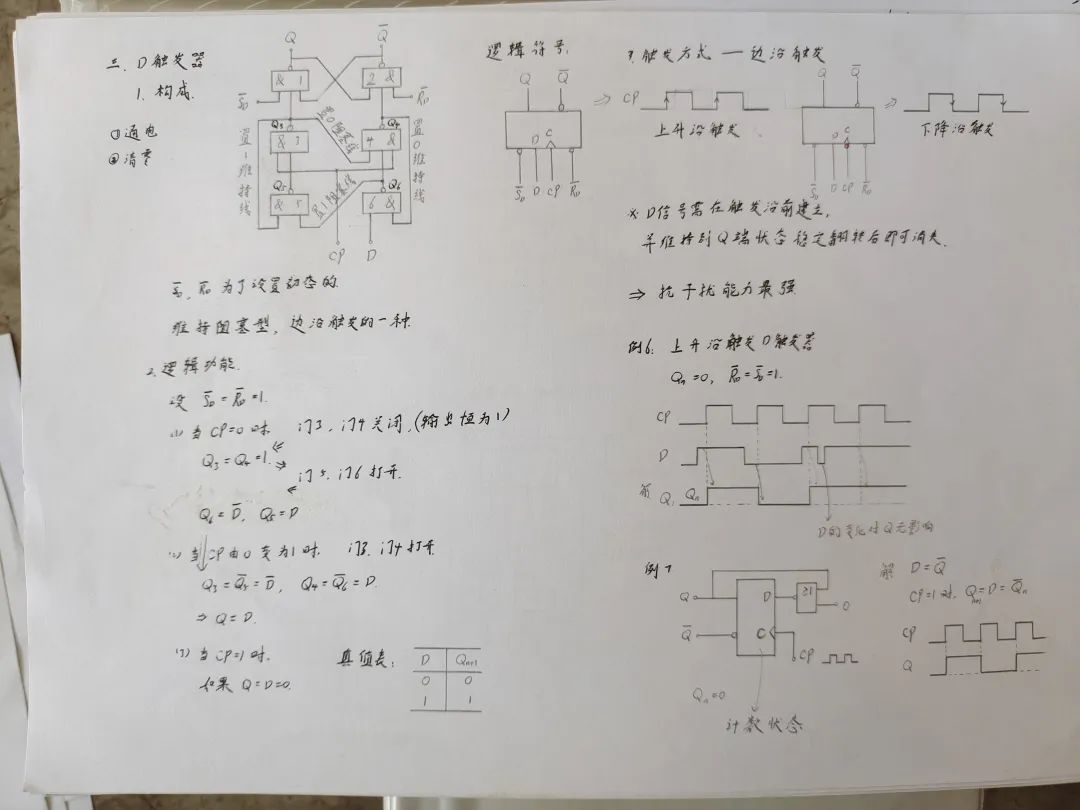 三、D触发器
1、构成.
①通电
②清零
Q Q̄
& 1 2 &
S̄D R̄D
Q3 Q4
& 3 4 &
置0阻塞线
置1维持线
置0维持线
Q5 Q6
& 5 6 &
置1阻塞线
CP D
S̄D, R̄D 为了设置初态的
维持阻塞型, 边沿触发的一种.
2、逻辑功能.
设 S̄D = R̄D = 1.
(1) 当 CP=0 时. 门3, 门4 关闭. (输出恒为1)
Q3 = Q4 = 1.
门5, 门6 打开.
Q6 = D̄, Q5 = D
(2) 当 CP 由 0 变为 1 时. 门3, 门4 打开
Q3 = Q̄5 = D̄, Q4 = Q̄6 = D.
⇒ Q = D.
(3) 当 CP=1 时.
如果 Q = D = 0.
真值表:
D Qn+1
0 0
1 1
逻辑符号:
Q Q̄
C
D
S̄D D CP R̄D
3、触发方式 — 边沿触发
⇒ CP
上升沿触发
Q Q̄
D C
S̄D D CP R̄D
⇒
下降沿触发
※ D信号需在触发沿前建立,
并维持到Q端状态稳定翻转后即可消失.
⇒ 抗干扰能力最强
例6: 上升沿触发D触发器
Qn = 0, R̄D = S̄D = 1.
CP
D
解 Q Qn
D的变化对Q无影响
例7
Q D ≥1 0
Q̄ C
CP
Qn = 0
计数状态
解 D = Q̄
CP=1 时, Qn+1 = D = Q̄n
CP
Q